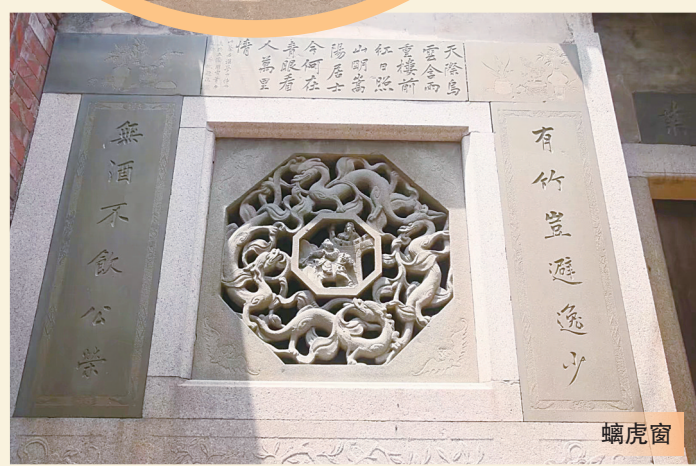 天際烏
雲含雨
重樓前
紅日照
山明嵩
陽居士
今何在
青眼看
人萬里
情
有竹豈避逸少
無酒不飲公榮
螭虎窗